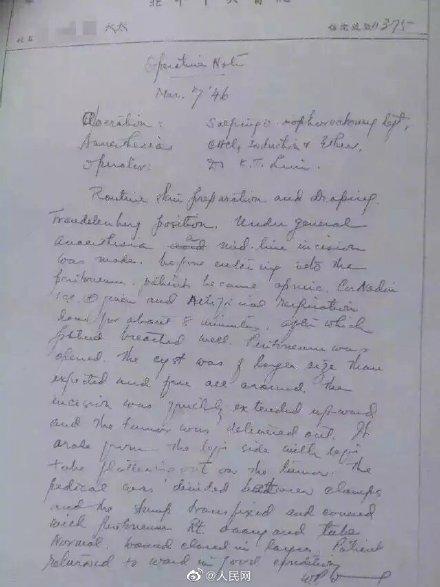 太太
0375
Operative Note
Mar. 7 '46
Operation: Salpingo-oophorectomy left.
Anaesthesia: CHCl3 Induction & Ether.
Operator: Dr K.T. Lim.
Routine skin preparation and draping.
Trendelenburg position. Under general
anaesthesia a mid-line incision
was made. before entering into the
peritoneum, patient became apneic.
1cc given and Artificial respiration
done for about 8 minutes, after which
patient breathed well. Peritoneum was
opened. The cyst was of larger size than
expected and free all around. The
incision was quickly extended upward
and the tumor was delivered out. It
arose from the left side with
tube flattening out on the tumor. The
pedical was divided between clamps
and the stump transfixed and covered
with peritoneum Rt. ovary and tube
Normal. wound closed in layers. Patient
returned to ward in good condition
@人民网